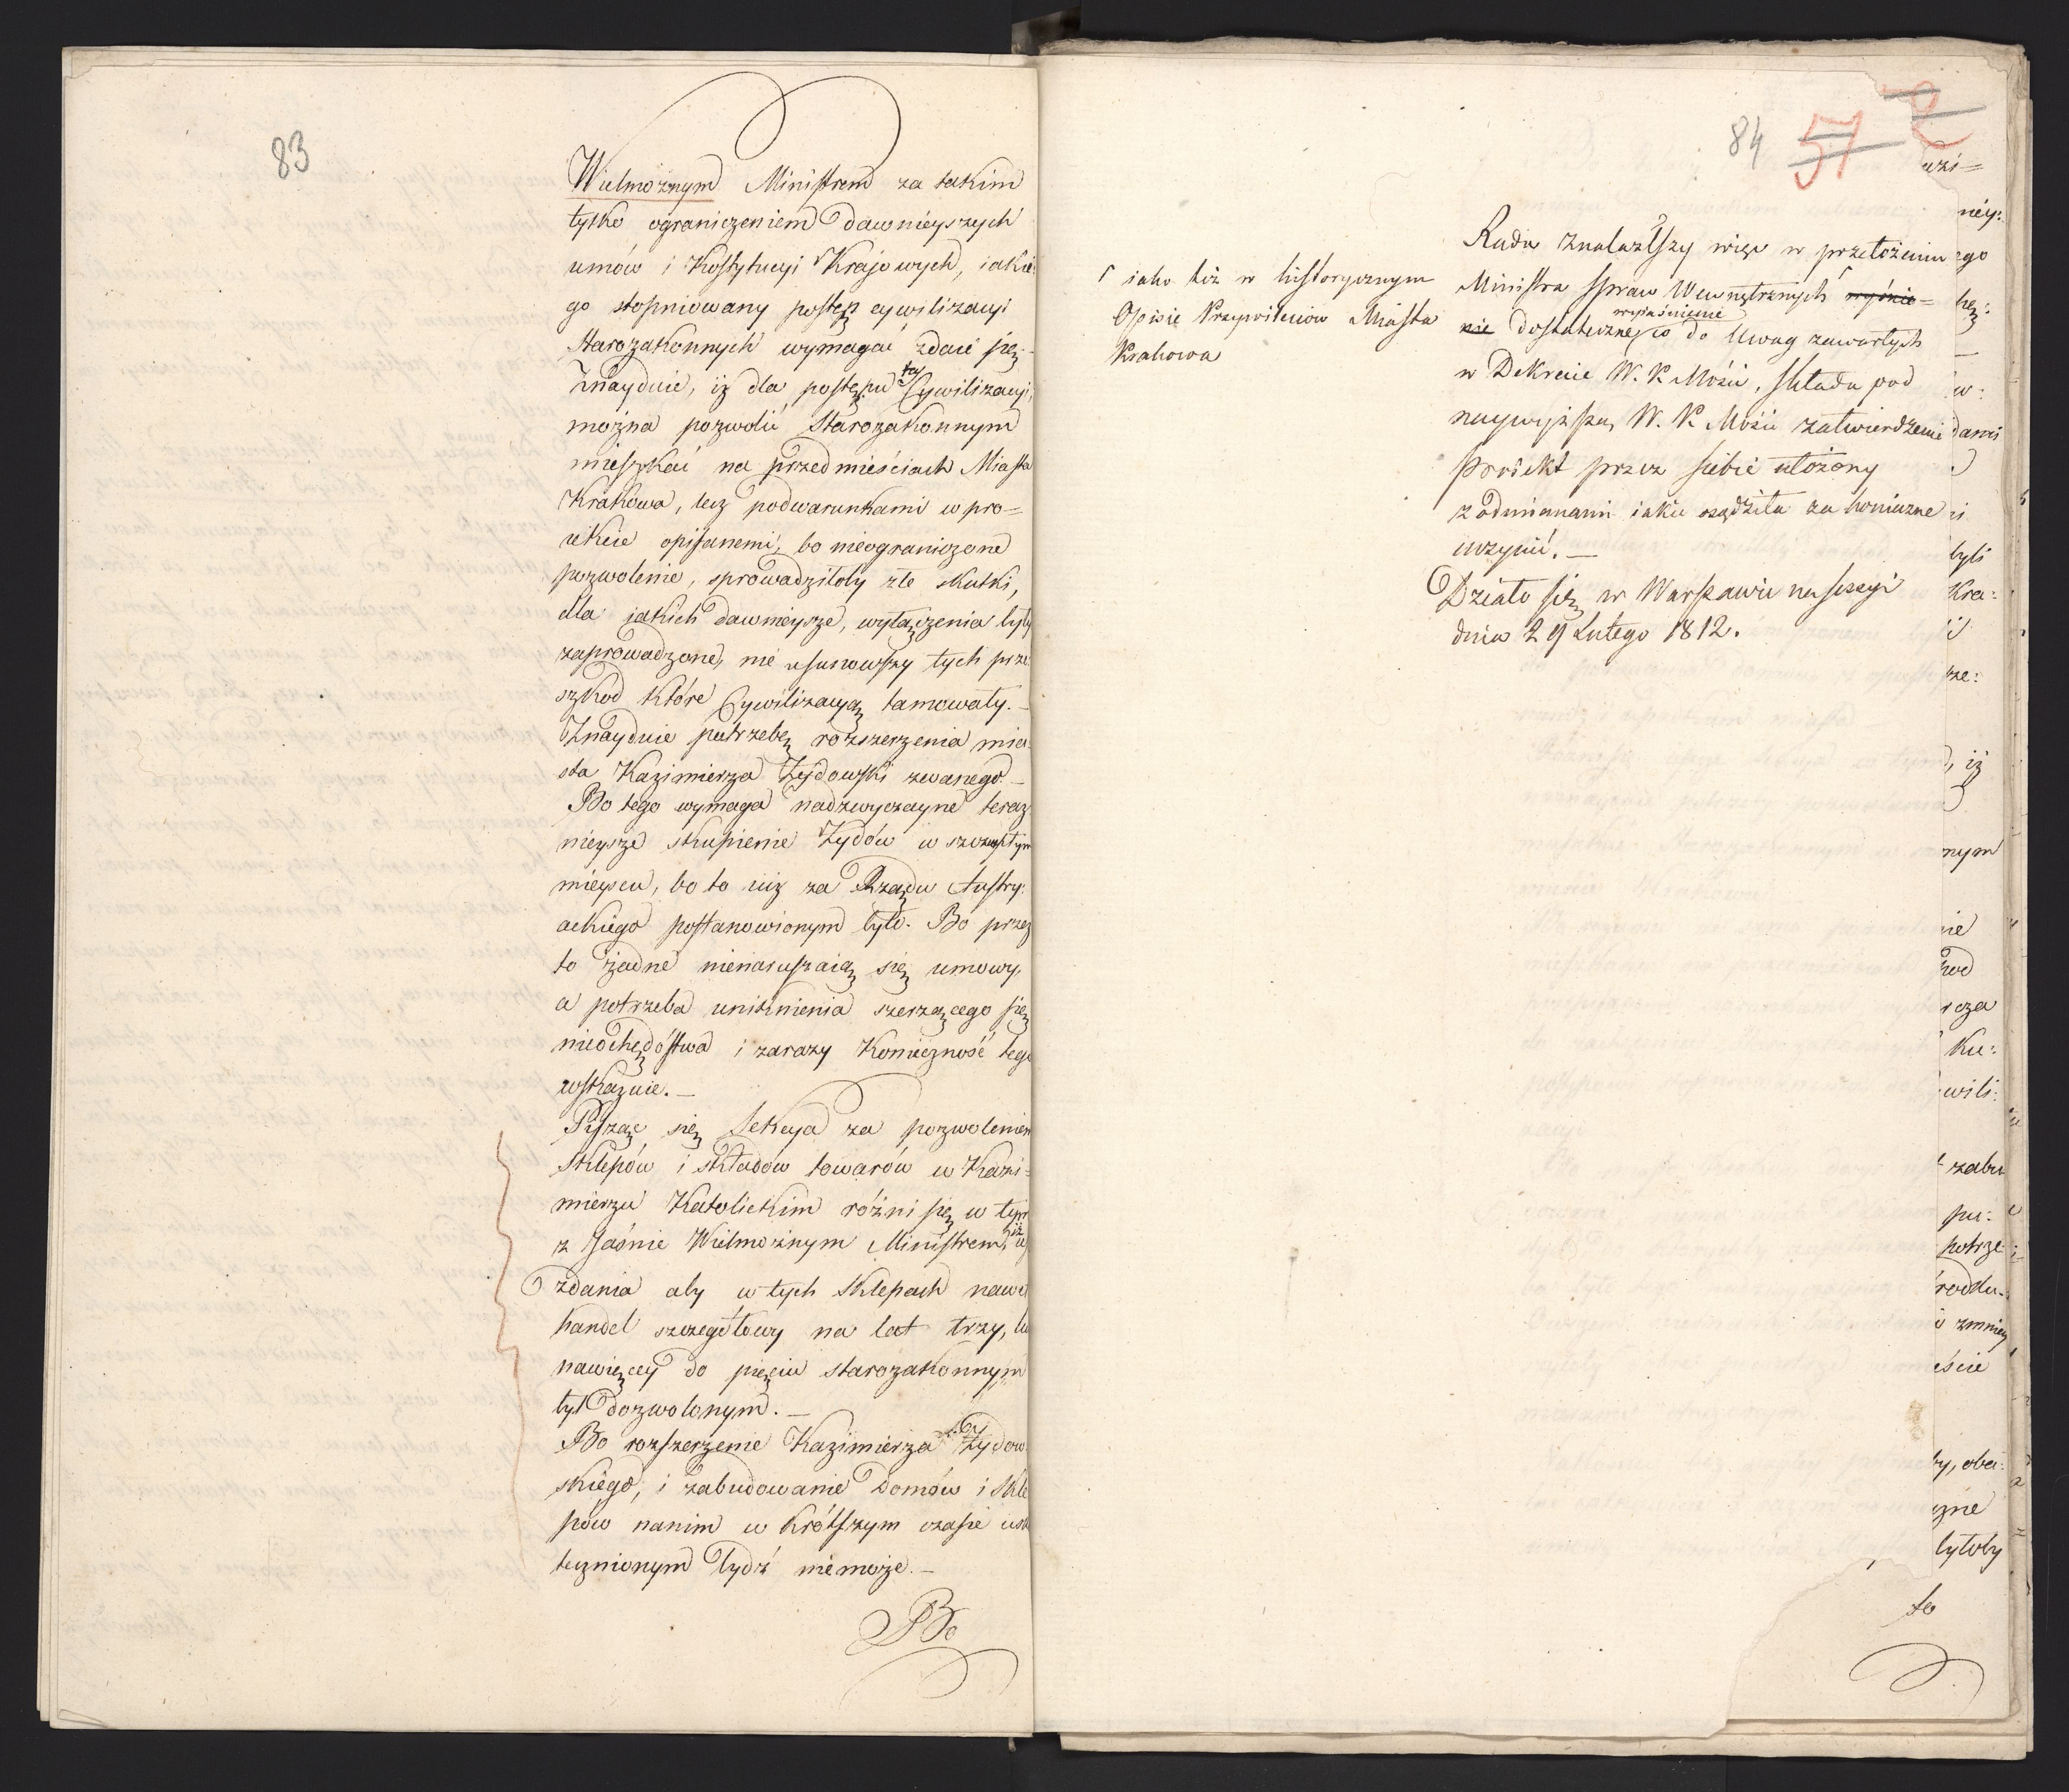 83
Wielmożnym Ministrem za takim
tylko ograniczeniem dawnieyszych
umów i Kostytucyi Krajowych, iakie
go stopniowany postęp cywilizacyi
starozakonnych wymagać zdaie się.
Znayduie, iż dla postępu tey Cywilizacyi,
można pozwolić Starozakonnym
mieszkać na przedmieściach Miasta
Krakowa, lecz pod warunkami w pro=
iekcie opisanemi, bo nieograniczone
pozwolenie, sprowadziłoby złe skutki,
dla jakich dawnieysze, wyłączenia były
zaprowadzone, nie usunowszy tych prze:
szkod które Cywilizacyą tamowały. —
Znayduie potrzebę rozszerzenia mia:
sta Kazimierza Żydowski zwanego. —
Bo tego wymaga nadzwyczayne teraz
nieysze skupienie Żydów w szczupłym
mieyscu, bo to iuż za Rządu Austry:
ackiego postanowionym było. Bo przez
to żadne nienaruszaią się umowy,
a potrzeba uniknienia szerzącego się
niedchędóstwa i zarazy Konieczność tego
wskazuie. —
Pisząc się Sekcya za pozwoleniem
Sklepów i składów towarów w Kazi=
mierzu Katolickim różni się w tym
z Jaśnie Wielmożnym Ministrem, iż
zdania aby w tych Sklepach nawet
handel szczegółowy na lat trzy, lu
nawięcey do pięciu starozakonnym
był dozwolonym. —
Bo rozszerzenie Kazimierza Żydow
skiego, i zabudowanie domów i skle
pów nanim w krótszym czasie usk
tecznionym bydź niemoże. —
Bo
84 57 2
Γ iako też w historycznym
Opisie Przywileiów Miasta
Krakowa
Rada znalazłszy więc w przełożeniu
Ministra Spraw Wewnętrznych Γ wyśnie=
nie dostateczne wyiaśnienie co do Uwag zawartych
w Dekrecie W. K. Mości, składa pod
naywyższe W. K. Mości zatwierdzenie
Proiekt przez siebie ułożony
z odmianami iakie osądziła za konieczne
uczynić. —
Działo się w Warszawie na sessyi
dnia 29 Lutego 1812.
ney:
ego
dami
byli
Kra:
, iż
nym
nie
Ku:
wili:
zabu
pu:
potrze
zmniey
eście
by, oba:
byłoby
to